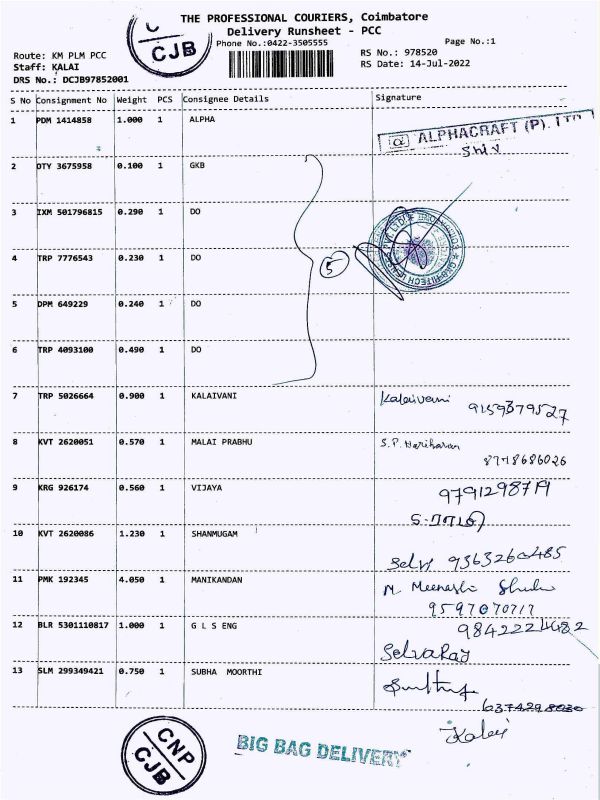 THE PROFESSIONAL COURIERS, Coimbatore
Delivery Runsheet - PCC
CJB
Phone No.:0422-3505555 Page No.:1
Route: KM PLM PCC RS No.: 978520
Staff: KALAI RS Date: 14-Jul-2022
DRS No.: DCJB97852001
S No Consignment No Weight PCS Consignee Details Signature
1 PDM 1414858 1.000 1 ALPHA
ALPHACRAFT (P). LTD
2 DTY 3675958 0.100 1 GKB
3 IXM 501796815 0.290 1 DO
4 TRP 7776543 0.230 1 DO
5
5 DPM 649229 0.240 1 DO
6 TRP 4093100 0.490 1 DO
7 TRP 5026664 0.900 1 KALAIVANI Kalaivani
9159379527
8 KVT 2620051 0.570 1 MALAI PRABHU S.P. Hariharan
8778686026
9 KRG 926174 0.560 1 VIJAYA
10 KVT 2620086 1.230 1 SHANMUGAM
9363260485
11 PMK 192345 4.050 1 MANIKANDAN
9597070717
12 BLR 5301110817 1.000 1 G L S ENG
SelvaRaj
13 SLM 299349421 0.750 1 SUBHA MOORTHI
6374298030
Kalai
CNP
CJB
BIG BAG DELIVERY